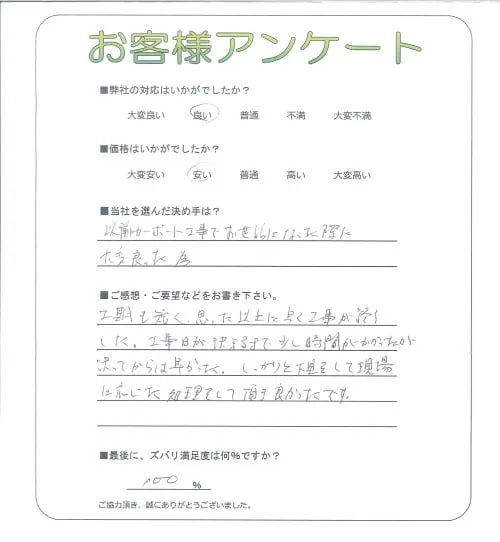 お客様アンケート
■弊社の対応はいかがでしたか？
大変良い 良い 普通 不満 大変不満
■価格はいかがでしたか？
大変安い 安い 普通 高い 大変高い
■当社を選んだ決め手は？
以前カーポート工事でお世話になった際に
大変良かった為
■ご感想・ご要望などをお書き下さい。
工期も短く、思った以上に早く工事が終了
した。工事日が決まるまで少し時間がかかったが
決ってからは早かった。しっかりと して現場
に応じた処理をして頂き良かったです。
■最後に、ズバリ満足度は何％ですか？
100 ％
ご協力頂き、誠にありがとうございました。